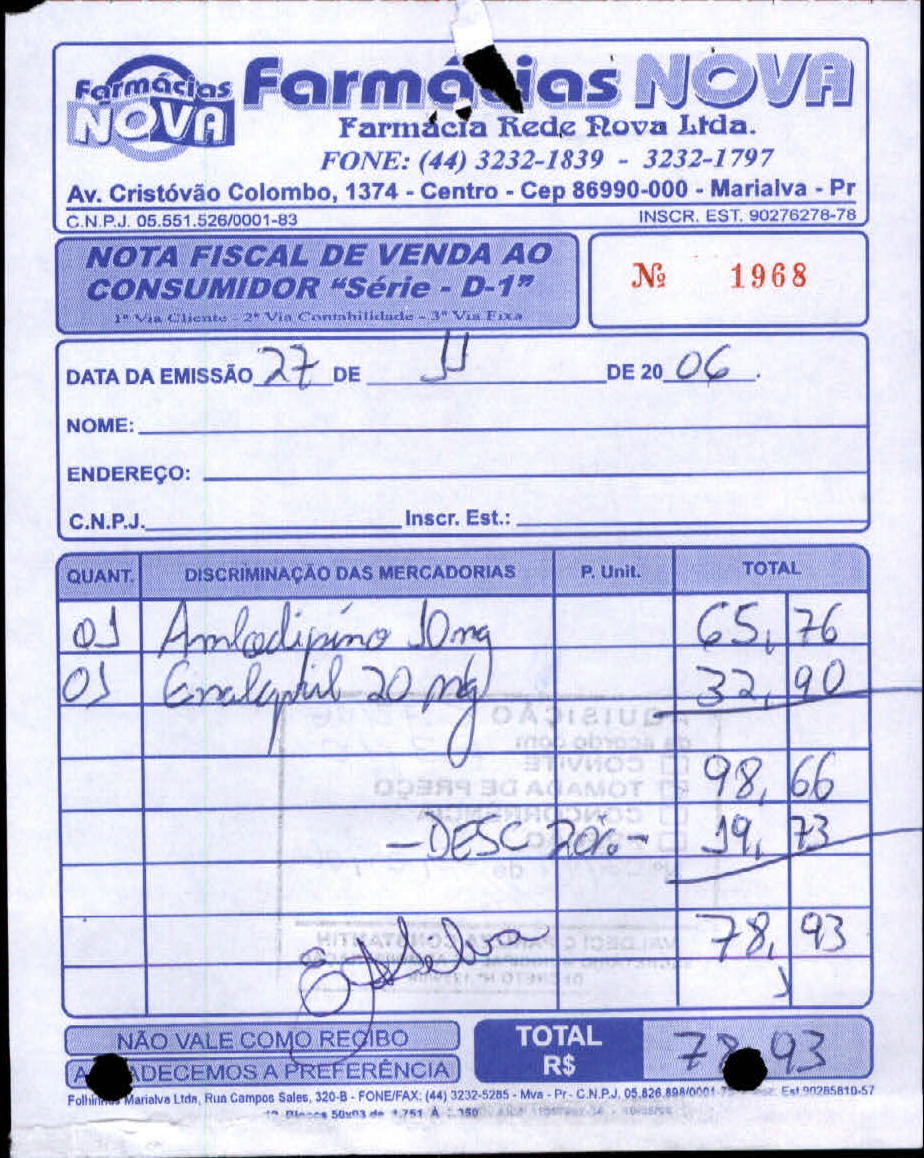 Farmácias
NOVA
Farmácias NOVA
Farmácia Rede Nova Ltda.
FONE: (44) 3232-1839 - 3232-1797
Av. Cristóvão Colombo, 1374 - Centro - Cep 86990-000 - Marialva - Pr
C.N.P.J. 05.551.526/0001-83 INSCR. EST. 90276278-78
NOTA FISCAL DE VENDA AO
CONSUMIDOR "Série - D-1"
1ª Via Cliente - 2ª Via Contabilidade - 3ª Via Fixa
Nº 1968
DATA DA EMISSÃO 27 DE 11 DE 20 06.
NOME:
ENDEREÇO:
C.N.P.J. Inscr. Est.:
QUANT. DISCRIMINAÇÃO DAS MERCADORIAS P. Unit. TOTAL
01 Amlodipino 10mg 65,76
01 Enalapril 20 mg 32,90
AQUISIÇÃO
de acordo com
CONVITE
98,66
TOMADA DE PREÇO
CONCORRÊNCIA
-DESC 20%- 19,73
78,93
NÃO VALE COMO RECIBO
TOTAL
R$ 78,93
AGRADECEMOS A PREFERÊNCIA
Marialva Ltda, Rua Campos Sales, 320-B - FONE/FAX: (44) 3232-5285 - Mva - Pr - C.N.P.J. 05.826.898/0001 Est.90285810-57